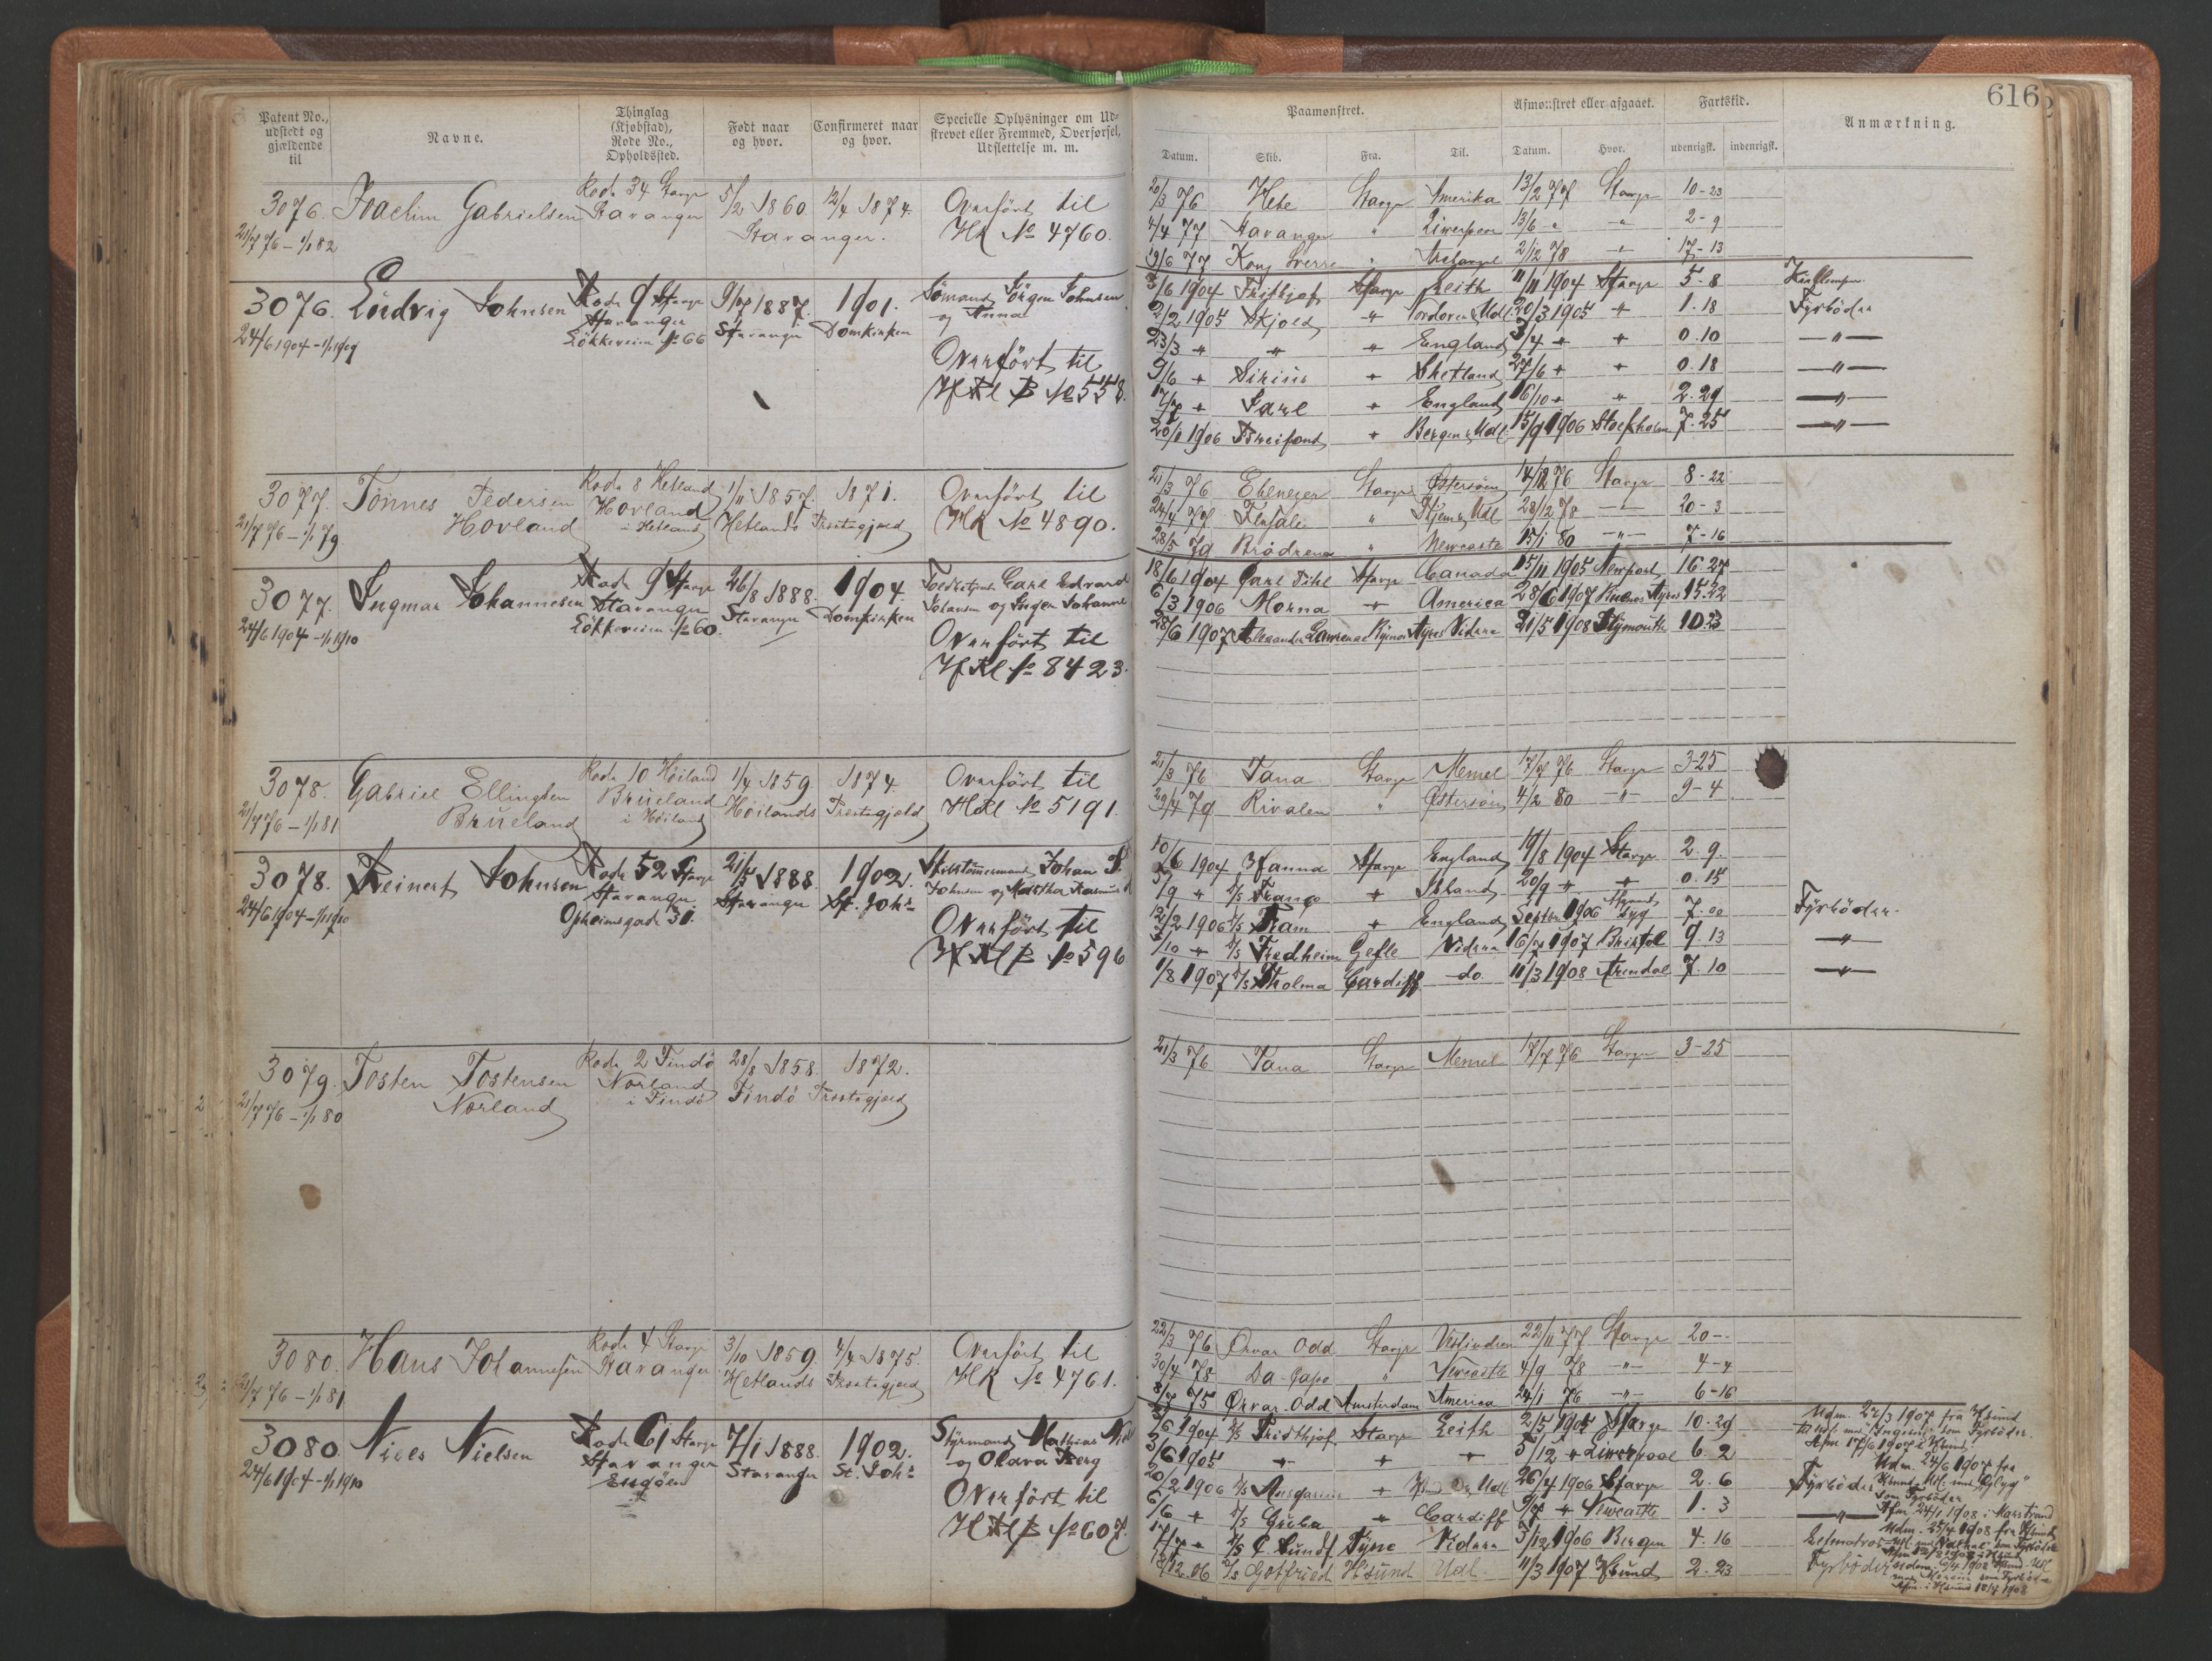 616
Patent No., udstedt og gjældende til
Navne.
Thinglag (Kjøbstad), Rode No., Opholdssted.
Født naar og hvor.
Confirmeret naar og hvor.
Specielle Oplysninger om Udskrevet eller Fremmed, Overførsel, Udslettelse m. m.
Paamønstret.
Afmønstret eller afgaaet.
Fartstid.
Anmærkning.
Datum. Skib. Fra. Til. Datum. Hvor. udenrigsk. indenrigsk.
3076. Joachim Gabrielsen Rode 34 Stavgr 5/2 1860. 12/4 1874. Overført til
21/7 76 – 1/1 82 Stavanger Stavanger. HR No 4760.
20/3 76 Hebe Stavgr Amerika 13/2 77 Stavgr 10-23
4/4 77 Stavanger " Liverpool 13/6 " " 2-9
19/6 77 Kong Sverre " 2/12 78 " 17-13
3076. Ludvig Johnsen Rode 9 Stavgr 9/7 1887. 1901. Sømand Jörgen Johnsen
24/6 1904 – 1/1 1909 Stavanger Stavanger Domkirken og Anna
Lökkeveien No 66
Overført til
HRl B No 558.
3/6 1904 Fridtjof Stavgr Leith 11/11 1904 Stavgr 5.8
2/2 1905 Skjold " Udl 20/3 1905 " 1.18 Fyrböder
23/3 " " " England 3/4 " " 0.10 —"—
9/6 " Sirius " Shetland 27/6 " " 0.18 —"—
17/7 " Jarl " England 16/10 " " 2.29 —"—
20/1 1906 Breifond " Bergen & Udl. 15/9 1906 Stockholm 7.25 —"—
3077. Tönnes Pedersen Rode 8 Hetland 1/11 1857. 1871. Overført til
21/7 76 – 1/1 79 Hovland Hovland i Hetland Hetlands Præstegjæld HR No 4890.
21/3 76 Ebenezer Stavgr Østersöen 14/12 76 Stavgr 8-22
24/4 77 " & Udl 28/12 78 —"— 20-3
28/5 79 Brödrene " Newcastle 15/1 80 —"— 7-16
3077. Ingmar Johannesen Rode 9 Stavgr 26/8 1888. 1904. Carl Edvard
24/6 1904 – 1/1 1910 Stavanger Stavanger Domkirken Johansen og Inger Johanne
Lökkeveien No 60.
Overført til
HRl No 8423.
18/6 1904 Carl Pihl Stavgr Canada 15/11 1905 Newport 16.27
6/3 1906 Morna " America 28/6 1907 Buenos Ayres 15.22
28/6 1907 Alexander Lawrence Ayres Videre 21/5 1908 Plymouth 10.23
3078. Gabriel Ellingsen Rode 10 Höiland 1/4 1859. 1874. Overført til
21/7 76 – 1/1 81 Brueland Brueland i Höiland Höilands Præstegjæld HRl No 5191.
21/3 76 Tana Stavgr Memel 17/7 76 Stavgr 3-25
22/4 79 Rivalen " Østersöen 4/2 80 —"— 9-4
3078. Reinert Johnsen Rode 52 Stavgr 21/5 1888. 1902. Skibstömermand Johan
24/6 1904 – 1/1 1910 Stavanger Stavanger St. Johs Johnsen og Martha
Opheimsgade 31.
Overført til
HRl B No 596
10/6 1904 Hanna Stavgr England 19/8 1904 Stavgr 2.9.
1/9 " D/S Island 20/9 " " 0.15
12/2 1906 D/S Fram " England Septbr 1906 syg 7.00 Fyrböder.
3/10 " D/S Fredheim Gefle Videre 16/7 1907 Bristol 9.13 —"—
1/8 1907 D/S Tholma Cardiff do. 11/3 1908 Arendal 7.10 —"—
3079. Tosten Tostensen Rode 2 Findö 28/8 1858. 1872.
21/7 76 – 1/1 80 Norland Norland i Findö Findö Præstegjæld
21/3 76 Tana Stavgr Memel 17/7 76 Stavgr 3-25
3080. Hans Johannesen Rode 4 Stavgr 3/10 1859. 4/4 1875. Overført til
21/7 76 – 1/1 81 Stavanger Hetlands Præstegjæld HR No 4761.
22/3 76 Ørvar Odd Stavgr Vestindien 22/11 77 Stavgr 20-
30/4 78 Da Capo " Newcastle 4/9 78 —"— 4-4
8/7 75 Ørvar Odd Amsterdam America 24/1 76 —"— 6-16
3080. Nils Nielsen Rode 61 Stavgr 7/1 1888. 1902. Styrmand Mathias
24/6 1904 – 1/1 1910 Stavanger Stavanger St. Johs og Olava Berg
Engöen
Overført til
HRl B No 607.
3/6 1904 D/S Fridthjof Stavgr Leith 2/5 1905 Stavgr 10.29
3/6 1905 " " " 5/12 " Liverpool 6.2
20/2 1906 D/S " Udl 26/4 1906 Stavgr 2.6 Fyrböder
6/6 " D/S " Cardiff 9/7 " Newcastle 1.3 —"—
17/7 " D/S C. Sundt Tyne Videre 3/12 1906 Bergen 4.16 Letmatros
18/12 06 D/S Gotfried Hsund Udl. 11/3 1907 Hsund 2.23 Fyrböder
Udm. 27/3 1907 fra Hsund
som Fyrböder.
Afm. 17/6 1907 i Hsund
Udm. 24/6 1907 fra
som Fyrböder
Afm. 24/1 1908 i Marstrand
Udm. 25/4 1908 fra Hsund